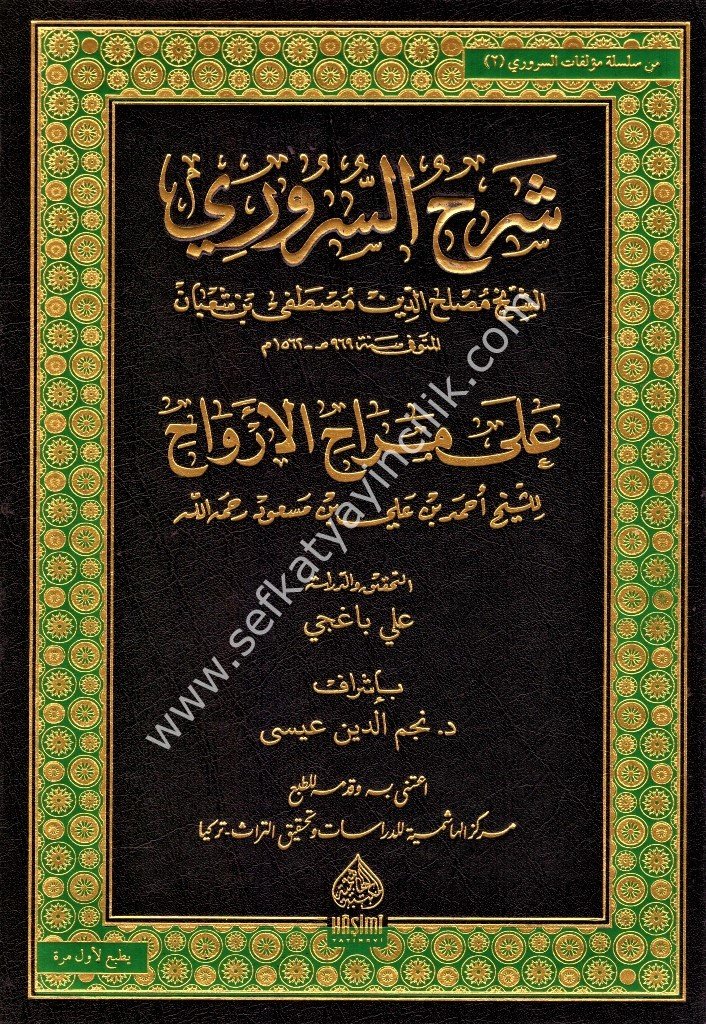 من سلسلة مؤلفات السروري (٢)
شَرْحُ السُّرُورِي
الشيخ مُصْلِحِ الدِّين مُصْطَفَى بْن شَعْبَان
المتوفى سنة ٩٦٩هـ - ١٥٦٢م
عَلَى مَرَاحِ الأَرْوَاحِ
للشيخ أحمد بن علي بن مسعود رحمه الله
التحقيق والدراسة
علي باغجي
بإشراف
د. نجم الدين عيسى
اعتنى به وقدمه للطبع
مركز الهاشمية للدراسات وتحقيق التراث - تركيا
HAŞİMİ
YAYINEVİ
يطبع لأول مرة
www.sefkatyayincilik.com